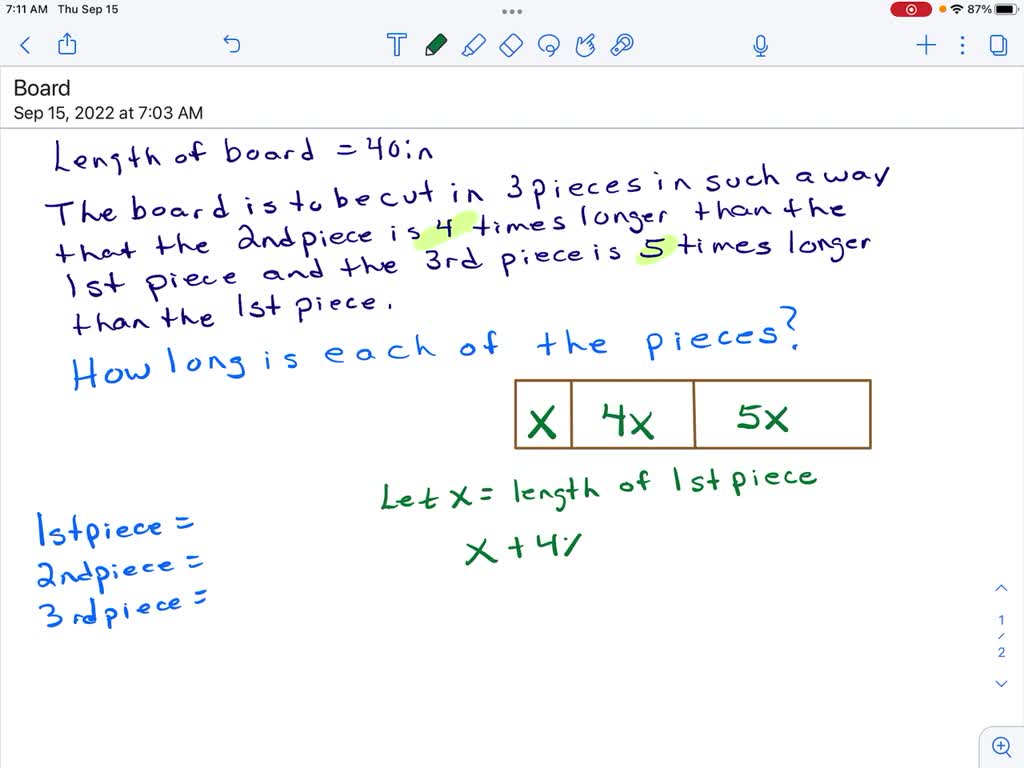 7:11 AM Thu Sep 15
87%
T
Board
Sep 15, 2022 at 7:03 AM
Length of board = 40in
The board is to be cut in 3 pieces in such a way
that the 2nd piece is 4 times longer than the
1st piece and the 3rd piece is 5 times longer
than the 1st piece.
How long is each of the pieces?
X 4X 5X
Let X = length of 1st piece
X + 4
1st piece =
2nd piece =
3rd piece =
1
/
2